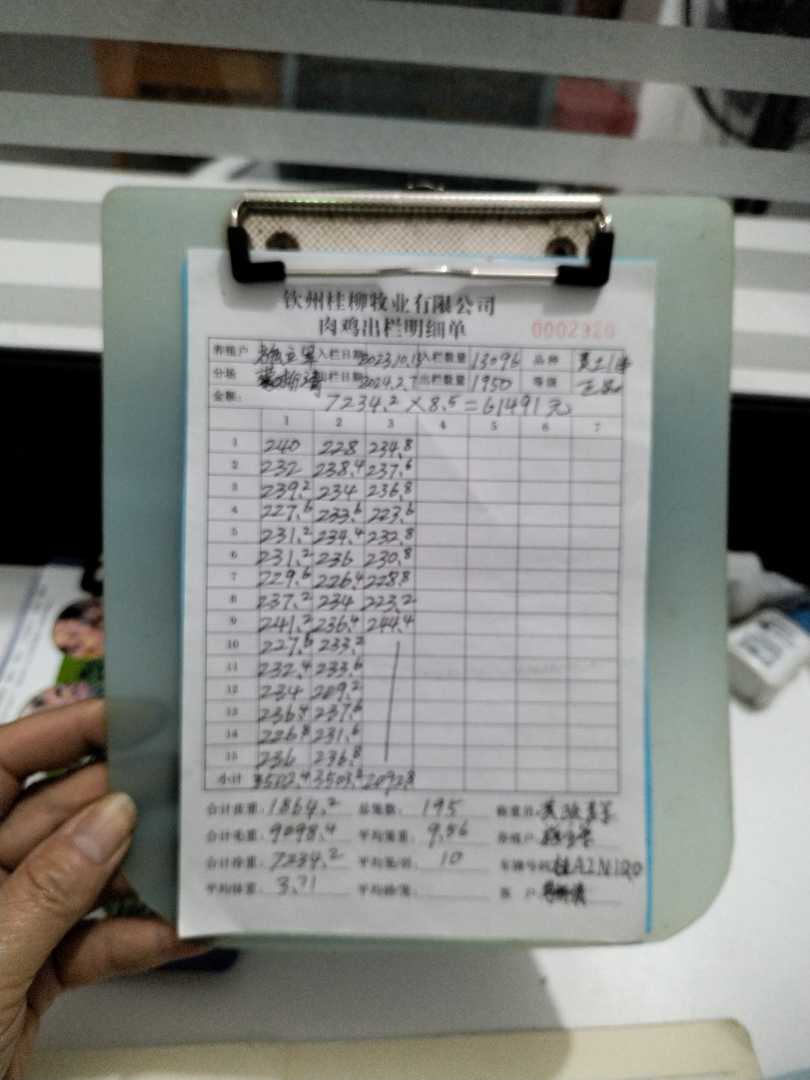 钦州桂柳牧业有限公司
肉鸡出栏明细单 0002326
养殖户 入栏日期 2023.10.15 入栏数量 13096 品种
分场 出栏日期 2024.2.7 出栏数量 1950 等级 正品
金额: 7234.2×8.5=61491元
1 2 3 4 5 6 7
1 240 228 234.8
2 232 238.4 237.6
3 239.2 234 236.8
4 227.6 233.6 223.6
5 231.2 234.4 232.8
6 231.2 236 230.8
7 229.6 226.4 228.8
8 237.2 234 223.2
9 241.2 236.4 244.4
10 227.6 233.2
11 232.4 233.6
12 234 229.2
13 236.4 237.6
14 226.8 231.6
15 236 236.8
小计 3502.4 3503.2 2092.8
合计皮重: 1864.2 总笼数: 195
合计毛重: 9098.4 平均笼重: 9.56 养殖户:
合计净重: 7234.2 平均只/笼: 10 车牌号码: 桂A2N1Q0
平均体重: 3.71 客户: